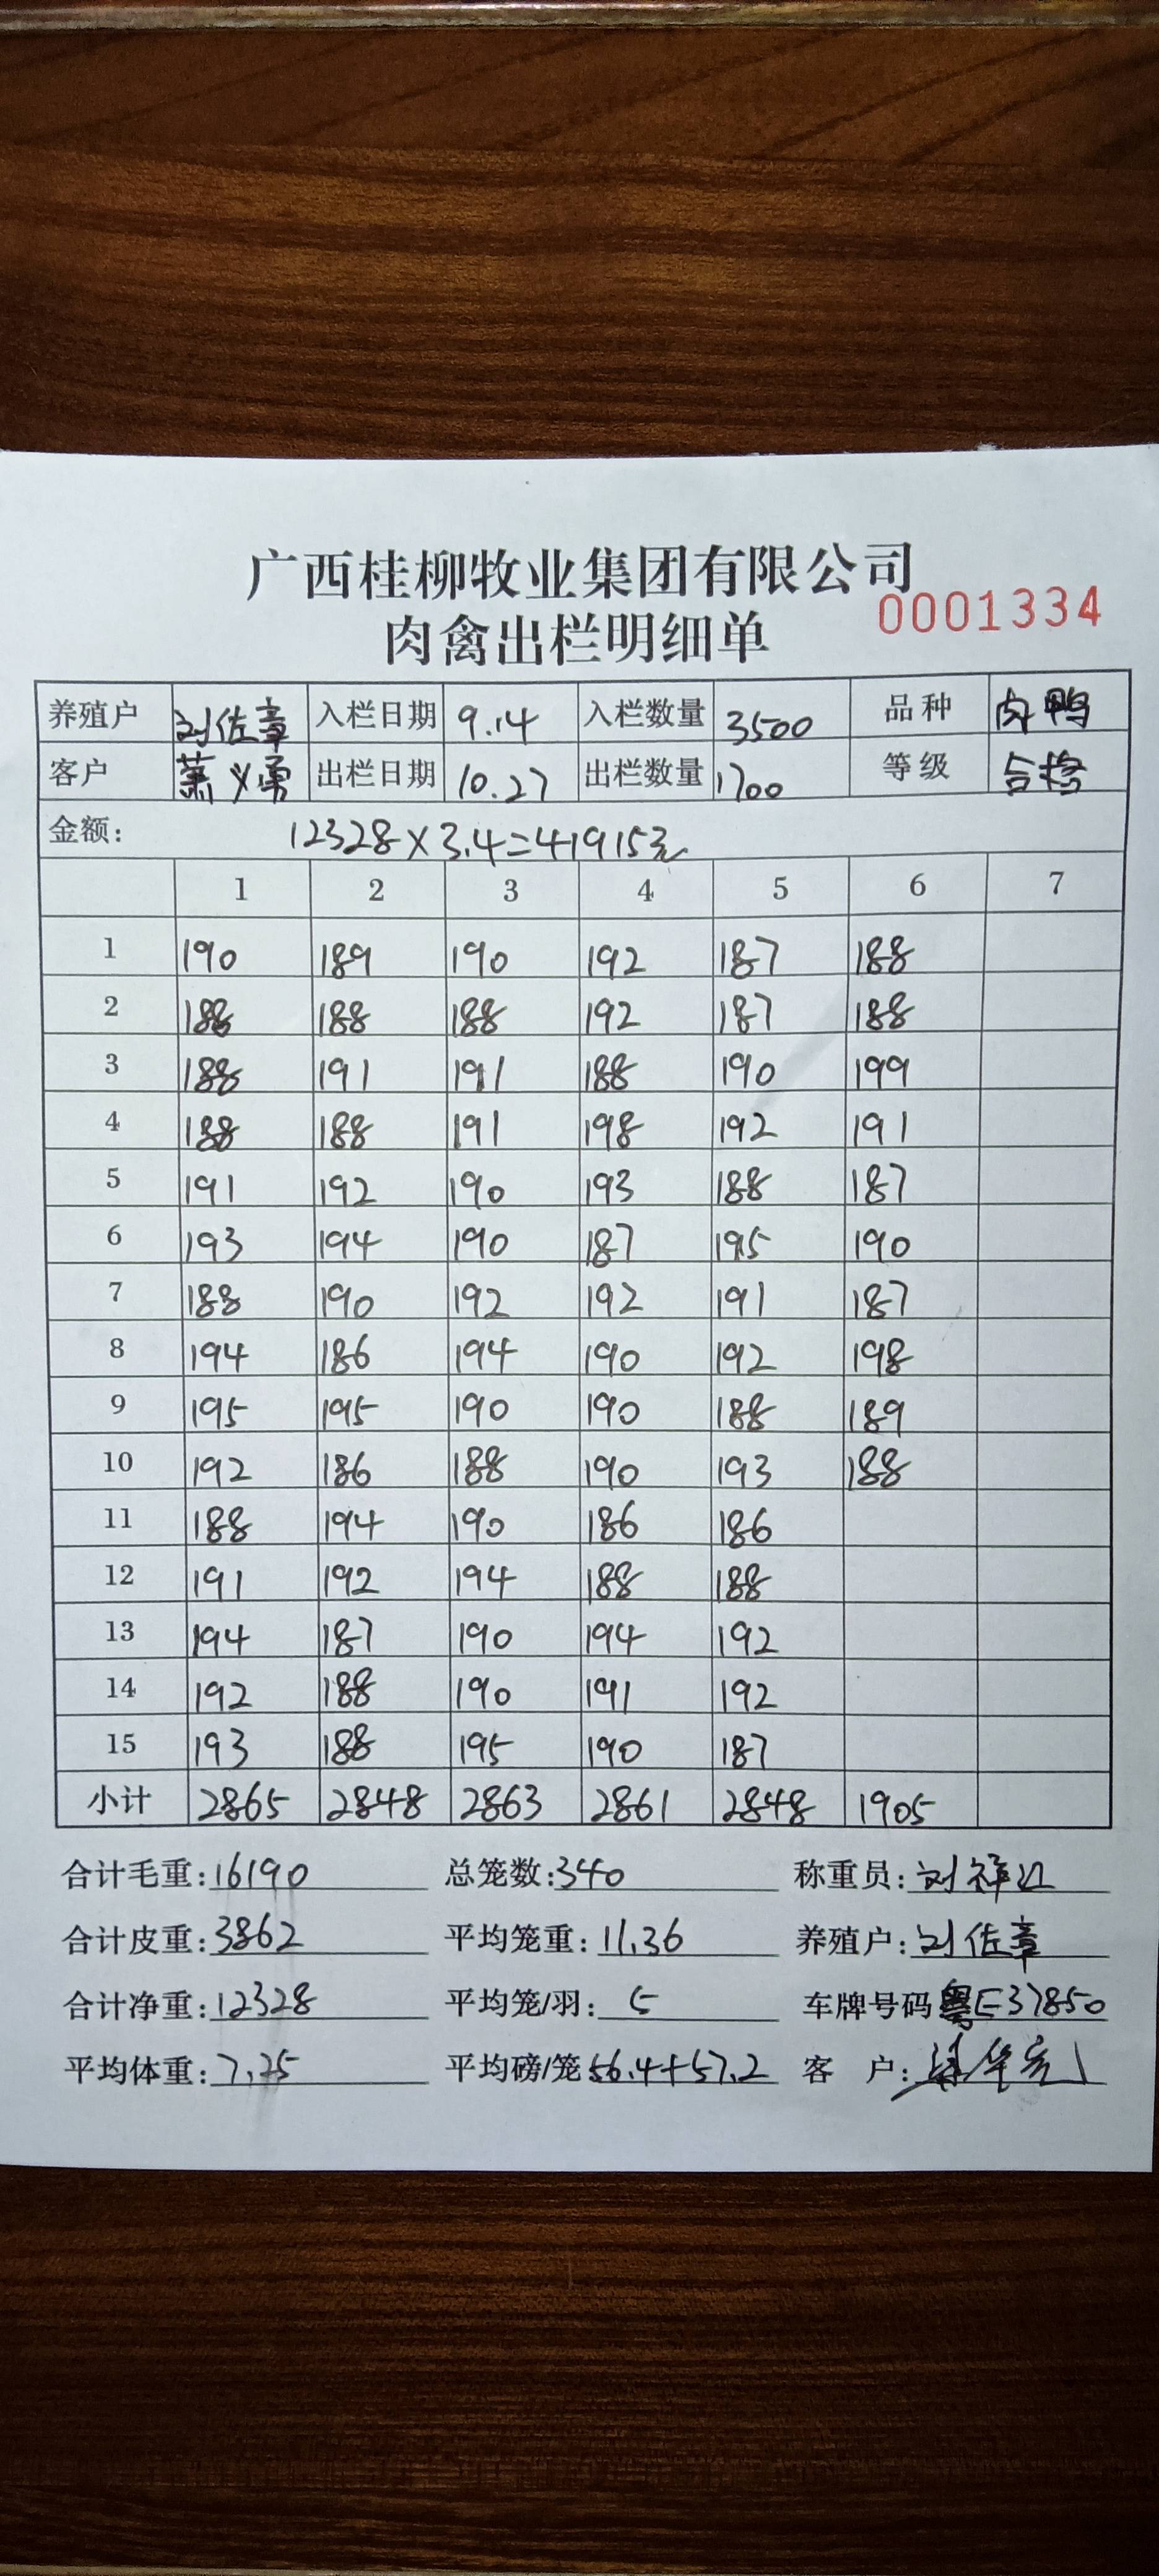 广西桂柳牧业集团有限公司
0001334
肉禽出栏明细单
养殖户 刘佐章 入栏日期 9.14 入栏数量 3500 品种 肉鸭
客户 萧义勇 出栏日期 10.27 出栏数量 1700 等级 合格
金额: 12328×3.4=41915元
1 2 3 4 5 6 7
1 190 189 190 192 187 188
2 188 188 188 192 187 188
3 188 191 191 188 190 199
4 188 188 191 198 192 191
5 191 192 190 193 188 187
6 193 194 190 187 195 190
7 188 190 192 192 191 187
8 194 186 194 190 192 198
9 195 195 190 190 188 189
10 192 186 188 190 193 188
11 188 194 190 186 186
12 191 192 194 188 188
13 194 187 190 194 192
14 192 188 190 191 192
15 193 188 195 190 187
小计 2865 2848 2863 2861 2848 1905
合计毛重:16190 总笼数:340 称重员:刘祥江
合计皮重:3862 平均笼重:11.36 养殖户:刘佐章
合计净重:12328 平均笼/羽: 5 车牌号码 粤E37850
平均体重:7.25 平均磅/笼 56.4+57.2 客 户: